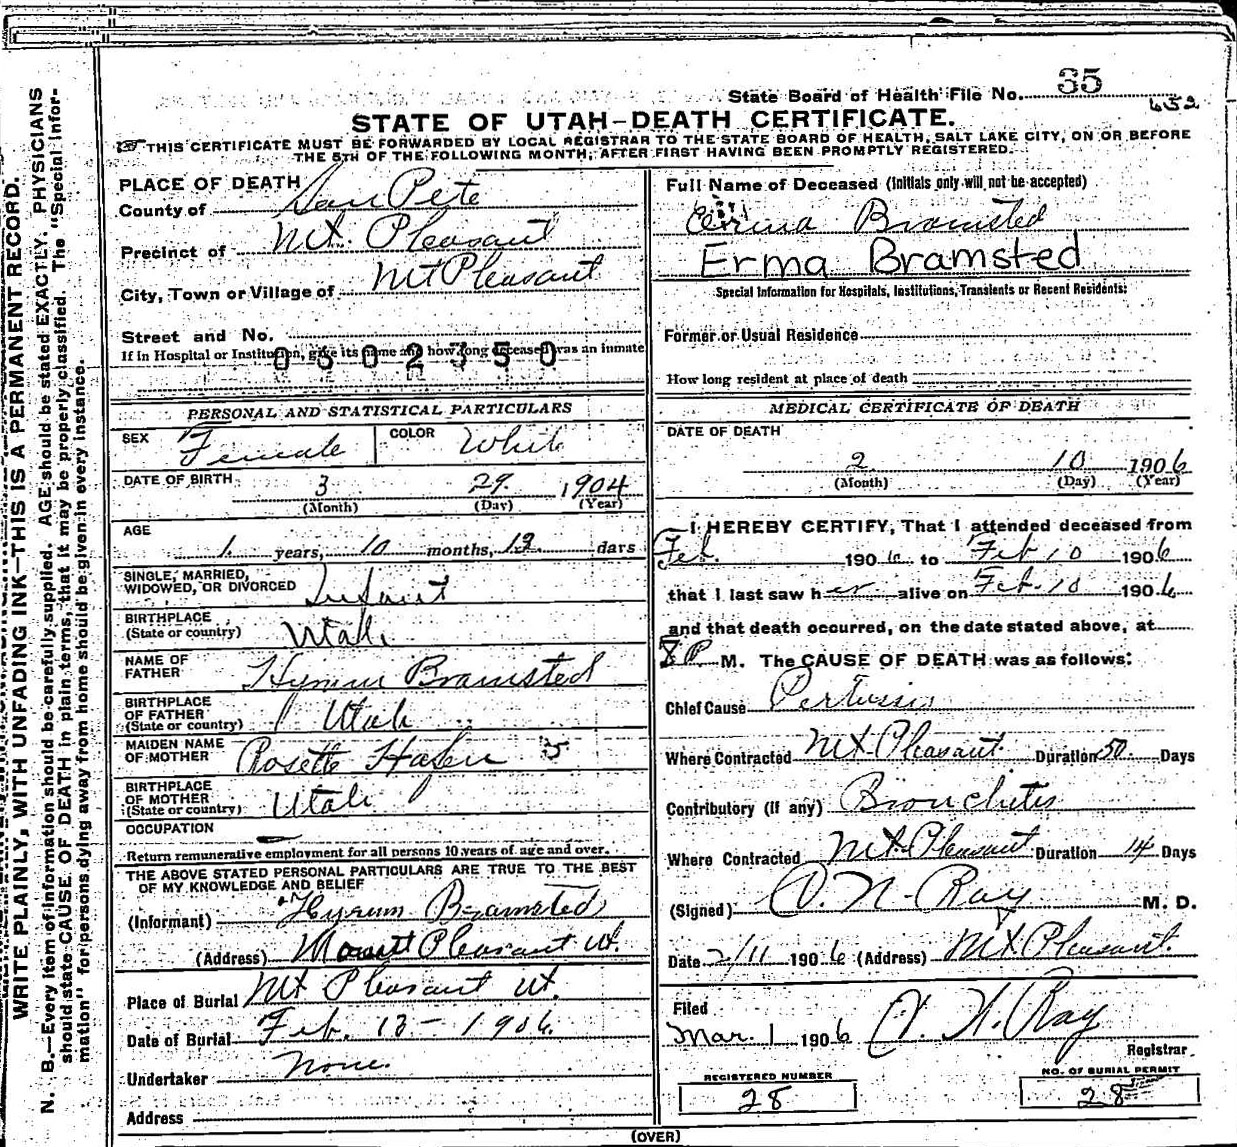 State Board of Health File No. 35
652
STATE OF UTAH–DEATH CERTIFICATE.
THIS CERTIFICATE MUST BE FORWARDED BY LOCAL REGISTRAR TO THE STATE BOARD OF HEALTH, SALT LAKE CITY, ON OR BEFORE
THE 5TH OF THE FOLLOWING MONTH, AFTER FIRST HAVING BEEN PROMPTLY REGISTERED.
WRITE PLAINLY, WITH UNFADING INK—THIS IS A PERMANENT RECORD.
N. B.—Every item of information should be carefully supplied. AGE should be stated EXACTLY. PHYSICIANS
should state CAUSE OF DEATH in plain terms, that it may be properly classified. The "Special Infor-
mation" for persons dying away from home should be given in every instance.
PLACE OF DEATH
County of San Pete
Precinct of Mt. Pleasant
City, Town or Village of Mt Pleasant
Street and No.
If in Hospital or Institution, give its name and how long deceased was an inmate
0502350
PERSONAL AND STATISTICAL PARTICULARS
SEX Female COLOR White
DATE OF BIRTH 3 29 1904
(Month) (Day) (Year)
AGE
1 years, 10 months, 13 days
SINGLE, MARRIED,
WIDOWED, OR DIVORCED Infant
BIRTHPLACE
(State or country) Utah
NAME OF
FATHER Hyrum Bramsted
BIRTHPLACE
OF FATHER
(State or country) Utah
MAIDEN NAME
OF MOTHER Rosette Hafen 5
BIRTHPLACE
OF MOTHER
(State or country) Utah
OCCUPATION
Return remunerative employment for all persons 10 years of age and over.
THE ABOVE STATED PERSONAL PARTICULARS ARE TRUE TO THE BEST
OF MY KNOWLEDGE AND BELIEF
(Informant) Hyrum Bramsted
(Address) Mount Pleasant Ut.
Place of Burial Mt Pleasant Ut.
Date of Burial Feb. 13 – 1906.
Undertaker None.
Address
Full Name of Deceased (Initials only will not be accepted)
Erma Bramsted
Erma Bramsted
Special Information for Hospitals, Institutions, Transients or Recent Residents:
Former or Usual Residence
How long resident at place of death
MEDICAL CERTIFICATE OF DEATH
DATE OF DEATH
2 10 1906
(Month) (Day) (Year)
I HEREBY CERTIFY, That I attended deceased from
Feb. 1906 to Feb 10 1906
that I last saw her alive on Feb. 10 1906
and that death occurred, on the date stated above, at
8 P M. The CAUSE OF DEATH was as follows:
Chief Cause Pertussis
Where Contracted Mt Pleasant Duration 50 Days
Contributory (If any) Bronchitis
Where Contracted Mt Pleasant Duration 14 Days
(Signed) O. N. Ray M. D.
Date 2/11 1906 (Address) Mt Pleasant.
Filed
Mar. 1 1906 A. N. Ray
Registrar
REGISTERED NUMBER
28
NO. OF BURIAL PERMIT
28
(OVER)